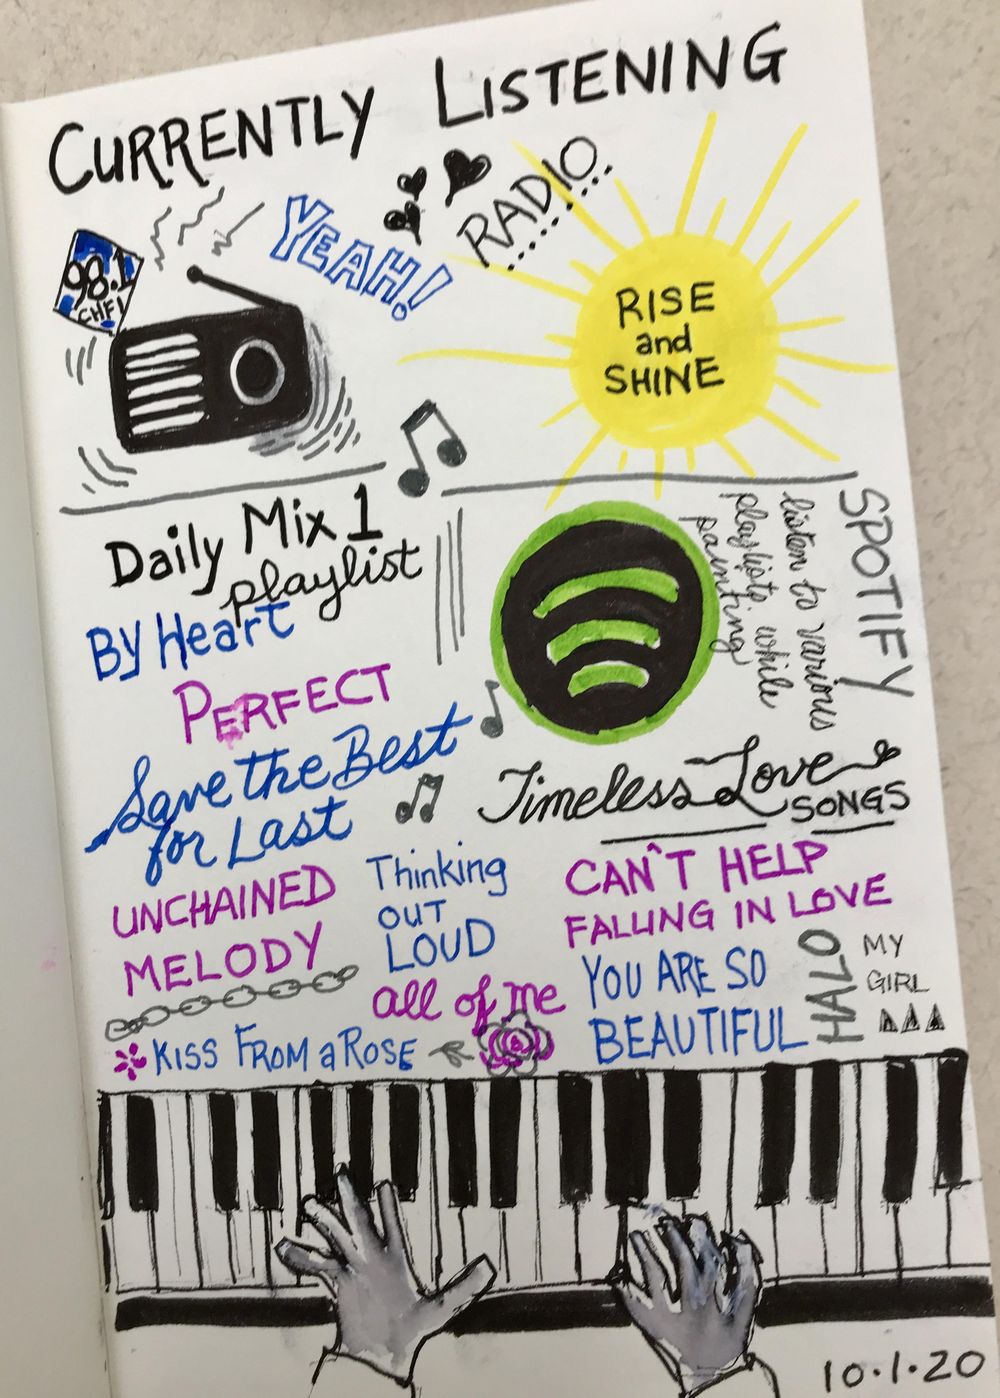 CURRENTLY LISTENING
98.1
CHFI
YEAH!
RADIO
RISE
and
SHINE
Daily Mix 1
playlist
By Heart
PERFECT
Save the Best
for Last
UNCHAINED
MELODY
Thinking
OUT
LOUD
all of me
KISS FROM a ROSE
SPOTIFY
listen to various
playlists while
painting
Timeless Love
SONGS
CAN'T HELP
FALLING IN LOVE
YOU ARE SO
BEAUTIFUL
HALO
MY
GIRL
10.1.20